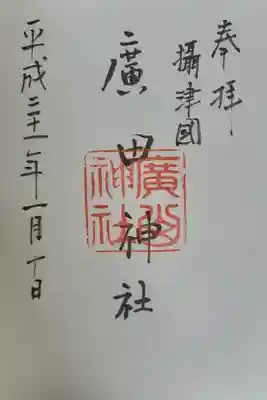 奉拝
攝津國
廣田神社
廣田
神社
平成二十一年一月 日